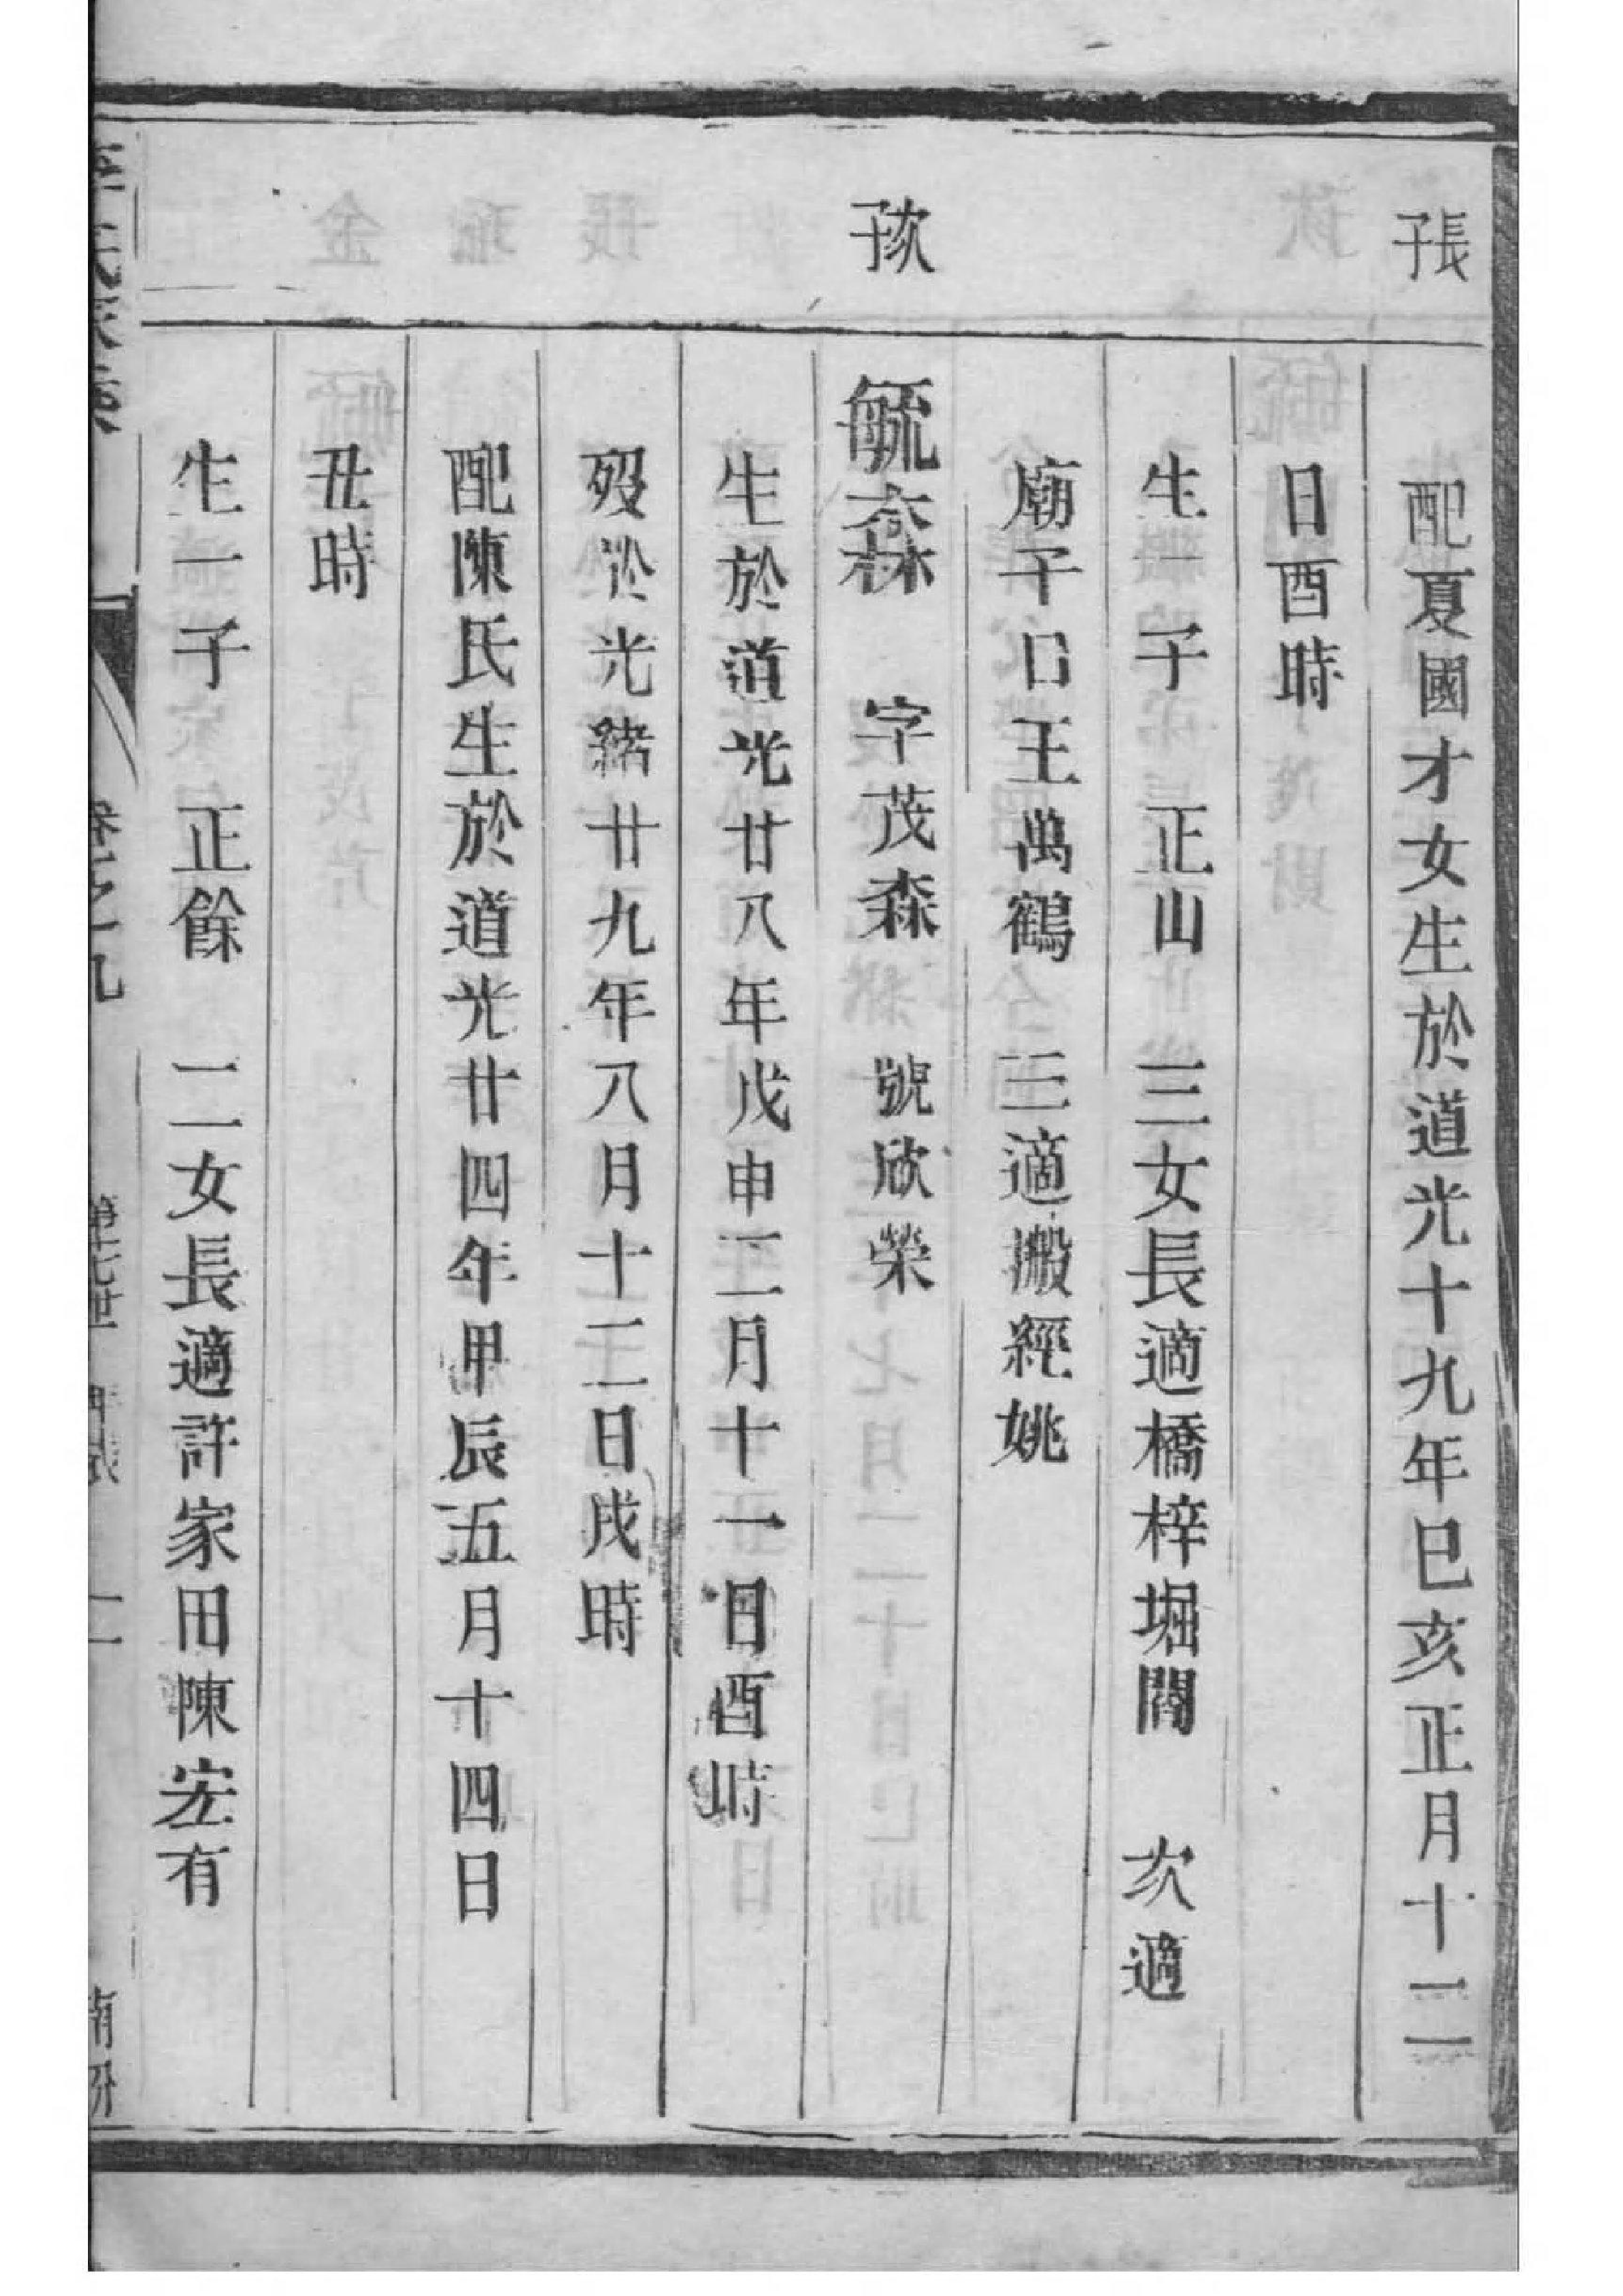 長子
次子
配夏國才女生於道光十九年巳亥正月十二
日酉時
生一子 正山 三女長適橋梓堀閻 次適
廟干口王萬鶴 三適搬經姚
毓森 字茂森 號欣榮
生於道光廿八年戊申二月十一日酉時
歿於光緒廿九年八月十二日戌時
配陳氏生於道光廿四年甲辰五月十四日
丑時
生一子 正餘 二女長適許家田陳宏有
卷之九